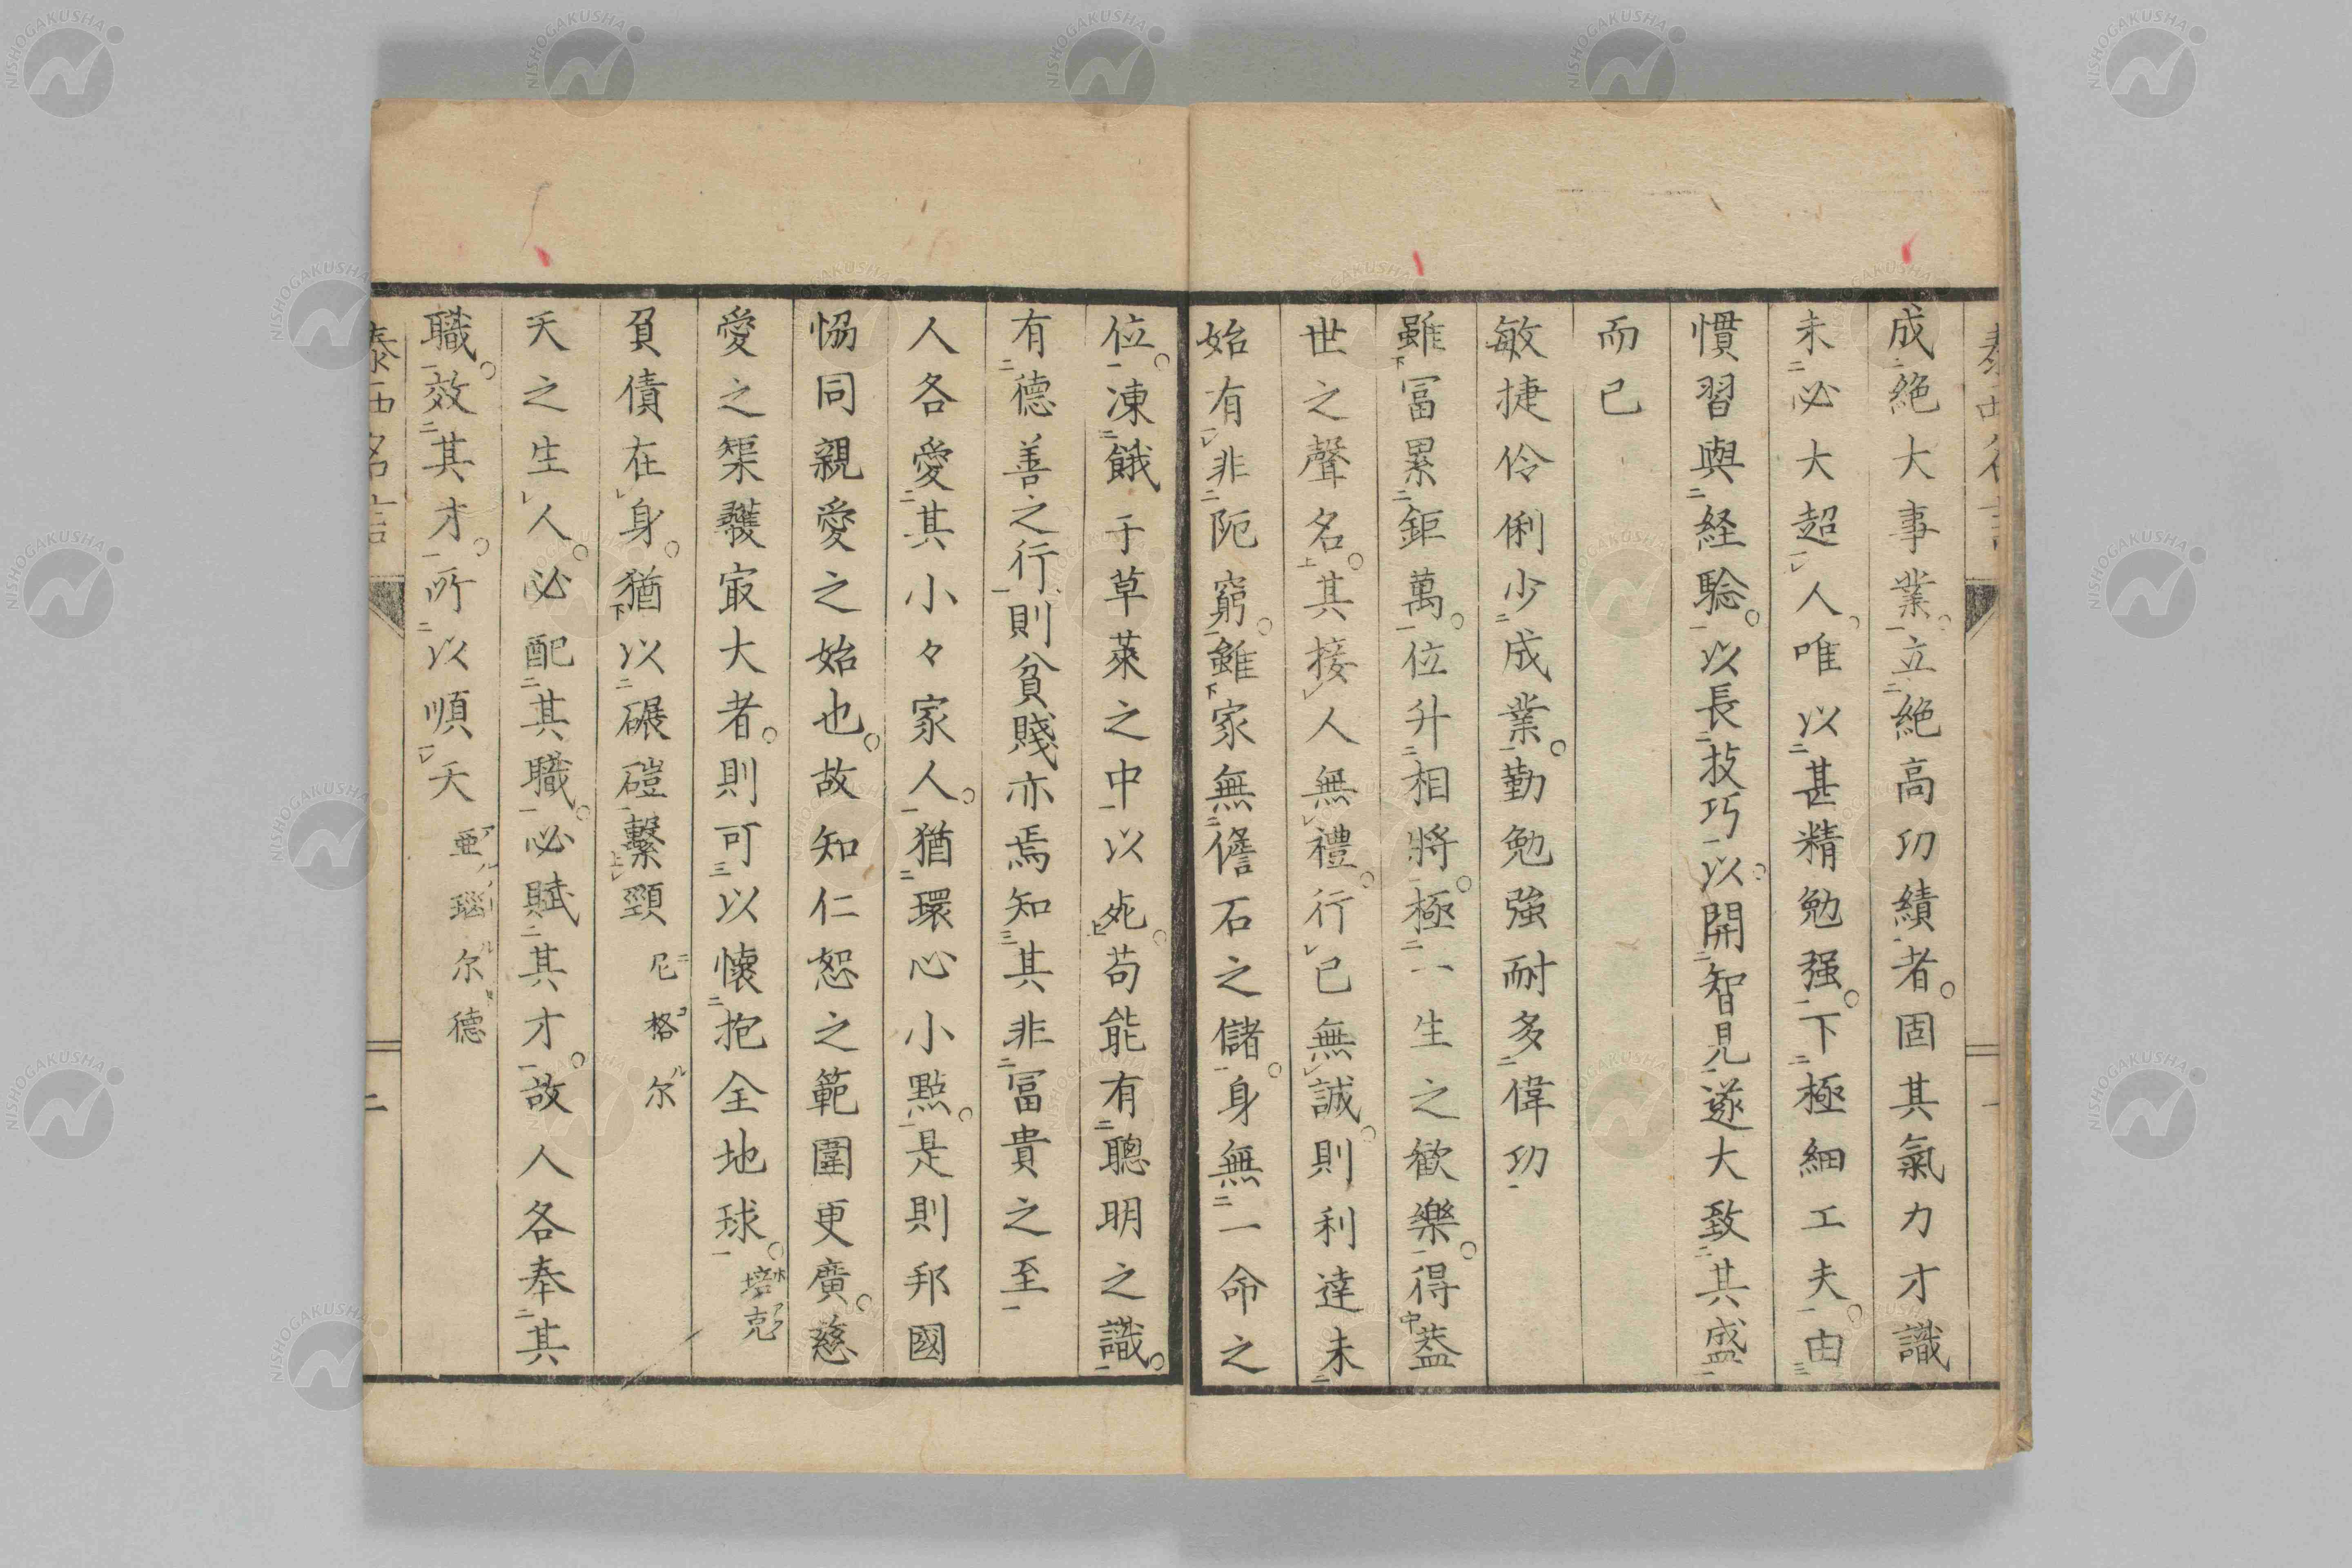 成絶大事業立絶高功績者。固其氣力才識
未必大超人。唯以甚精勉强。下極細工夫。由
慣習與経驗。以長技巧。以開智見遂大致其盛
而已
敏捷伶俐少成業。勤勉強耐多偉功
雖冨累鉅萬。位升相將。極一生之歓樂。得葢
世之聲名。其接人無禮。行已無誠。則利達未
始有非阨窮。雖家無儋石之儲。身無一命之
位。凍餓于草萊之中以死。苟能有聰明之識。
有德善之行則貧賤亦焉知其非冨貴之至
人各愛其小々家人。猶環心小點。是則邦國
恊同親愛之始也。故知仁恕之範圍更廣。慈
愛之榘彠㝡大者。則可以懷抱全地球。培克
負債在身。猶以碾磑繋頸 尼格尔
天之生人。必配其職。必賦其才。故人各奉其
職。效其才。所以順天 亜瑙尔德
泰西名言
二